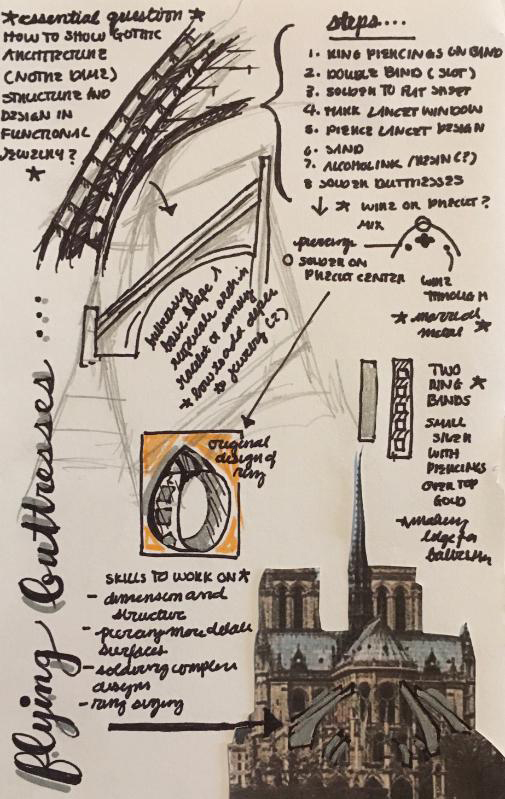 *essential question*
HOW TO SHOW GOTHIC
ARCHITECTURE
(NOTRE DAME)
STRUCTURE AND
DESIGN IN
FUNCTIONAL
JEWELRY?
steps....
1. RING PIERCINGS ON BAND
2. DOUBLE BAND (SLOT)
3. SOLDER TO FLAT SHEET
4. MARK LANCET WINDOW
5. PIERCE LANCET DESIGN
6. SAND
7. ALCOHOL INK / RESIN (?)
8 SOLDER BUTTRESSES
* WIRE OR PRECUT?
MIX
piercing
SOLDER ON
PRECUT CENTER
WIRE
THROUGH
*married
metal*
buttresses
base shape
replicate arch in
bracelet or something
* how to add depth
to jewelry (?)
TWO
RING *
BANDS
SMALL
SILVER
WITH
PIERCINGS
OVER TOP
GOLD
*making
ledge for
buttress
original
design of
ring
SKILLS TO WORK ON*
- dimension and
structure
- piercing more delicate
surfaces
- soldering complex
designs
- ring sizing
flying buttresses...